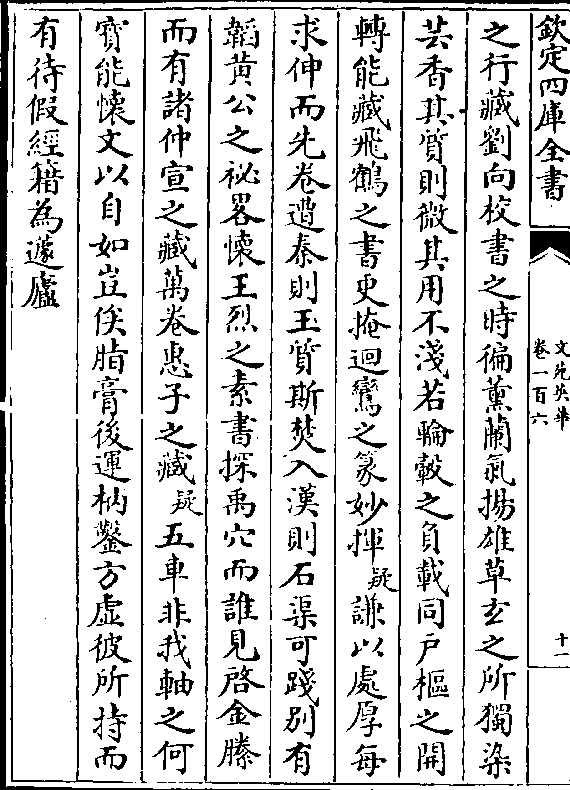 欽定四庫全書
文苑英華
卷一百六
十一
之行藏劉向校書之時徧薰蘭氣揚雄草玄之所獨染
芸香其質則微其用不淺若輪轂之負載同戶樞之開
轉能藏飛鶴之書更掩迴鸞之篆妙揮疑謙以處厚每
求伸而先卷遭秦則玉質斯焚入漢則石渠可踐别有
韜黄公之祕畧懷王烈之素書探禹穴而誰見啓金縢
而有諸仲宣之藏萬卷惠子之藏疑五車非我軸之何
寳能懷文以自如豈俟脂膏後運枘鑿方虚彼所持而
有待假經籍為蘧廬